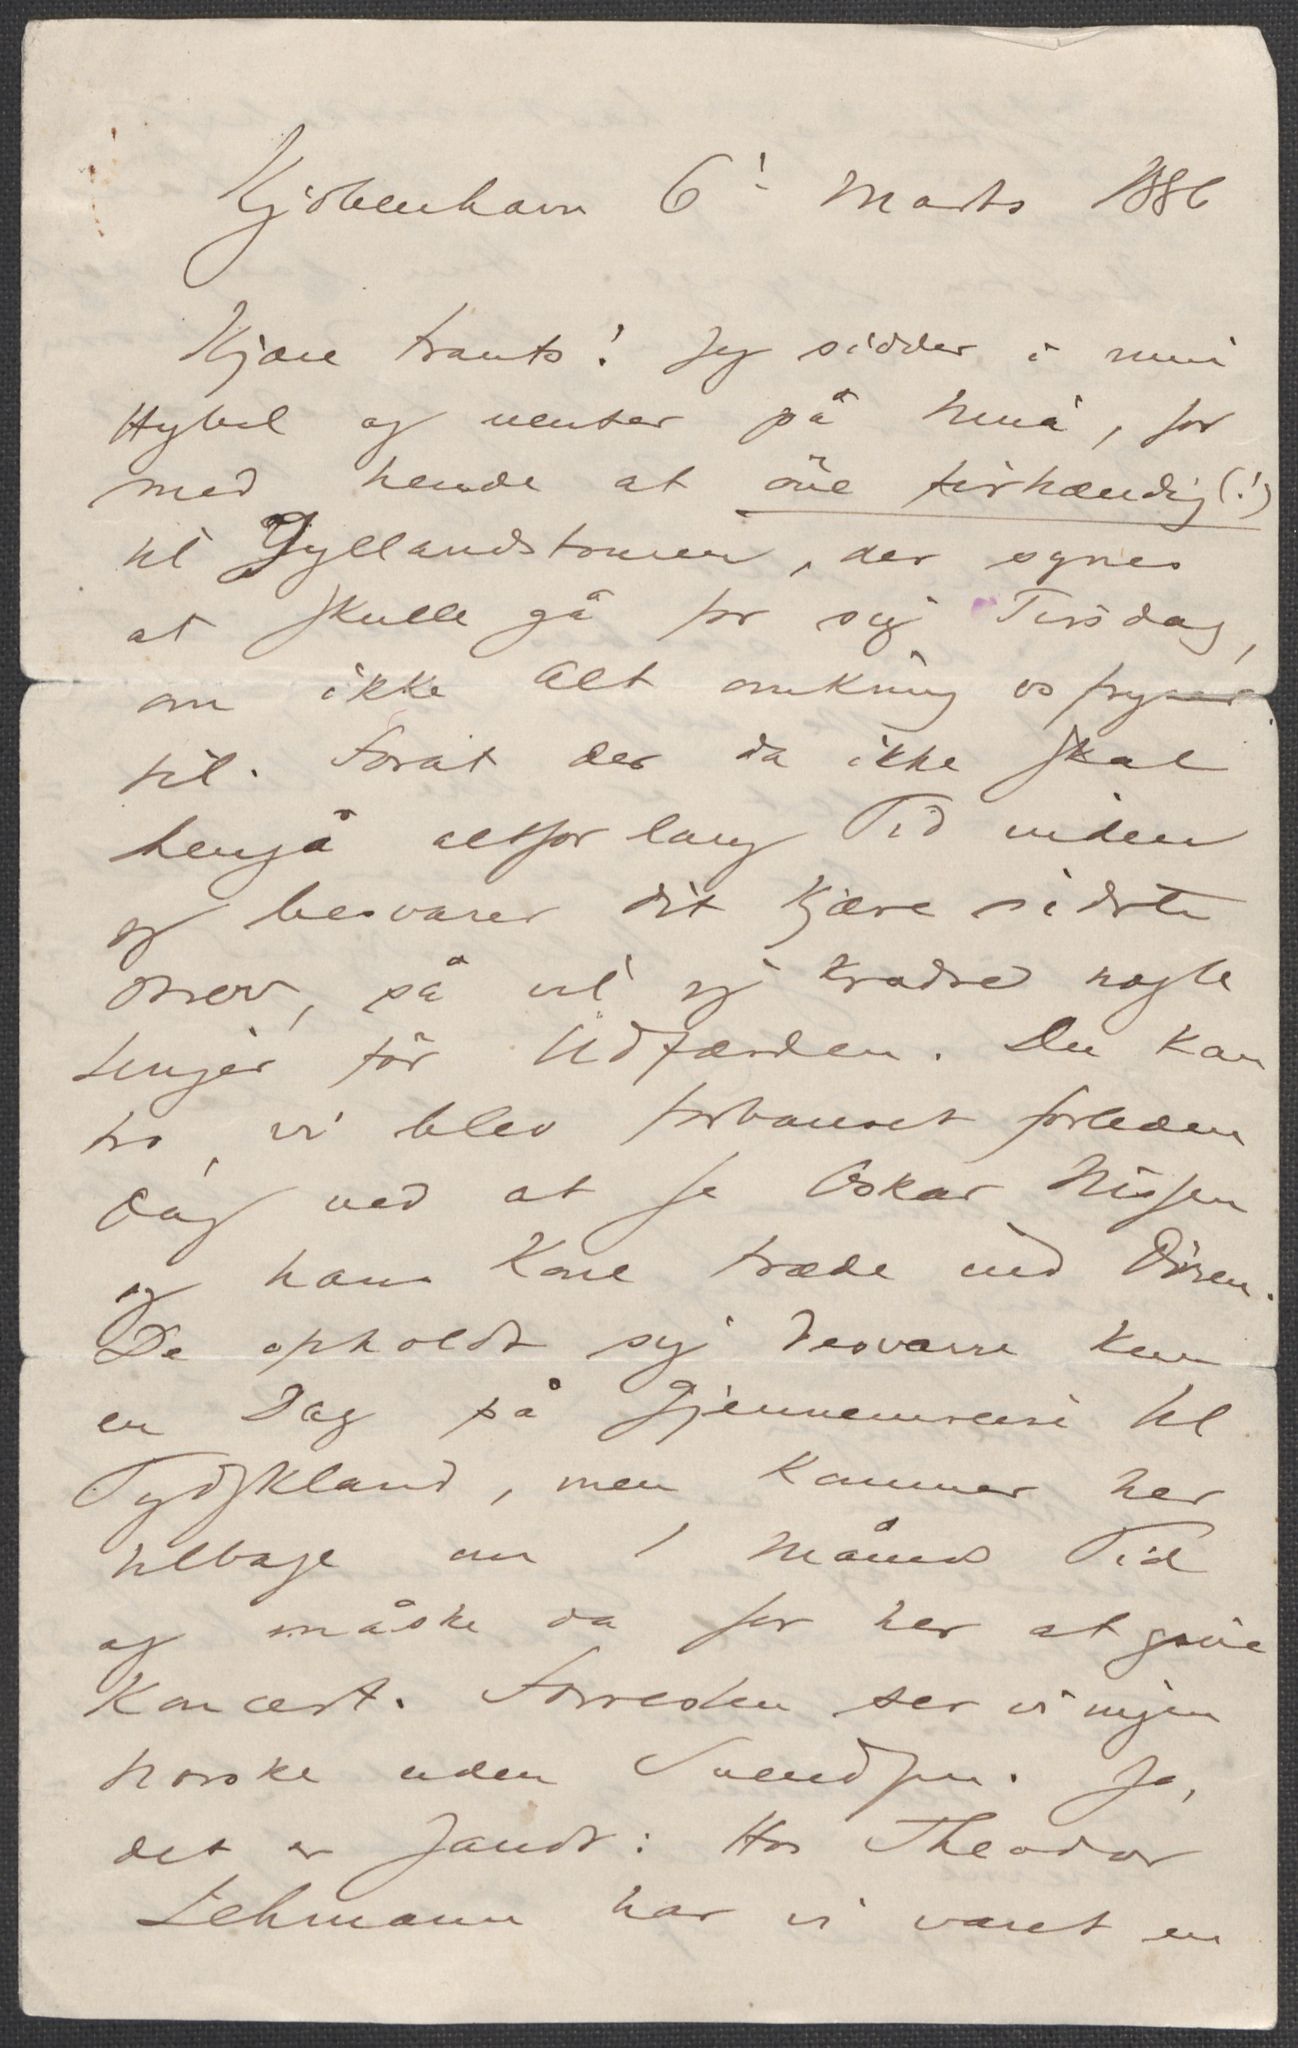 Kjöbenhavn 6! Marts 1886
Kjære Frants! Jeg sidder i min
Hybel og venter på Nina, for
med hende at öve firhændig (!)
til Jyllandstourneen, der synes
at skulle gå for sig Tirsdag,
om ikke Alt omkring os fryser
til. Forat der da ikke skal
hengå altfor lang Tid inden
jeg besvarer dit kjære sidste
Brev, så vil jeg kradse nogle
Linjer för Udfærden. Du kan
tro, vi blev forbauset forleden
Dag ved at se Oskar Nissen
og hans Kone træde ind Dören.
De opholdt sig desværre kun
en Dag på Gjennemreise til
Tydskland, men kommer her
tilbage om 1 Måneds Tid
og måske da for her at give
Koncert. Forresten ser vi ingen
Norske uden Svendsen. Jo,
det er sandt: Hos Theodor
Lehmann har vi været en